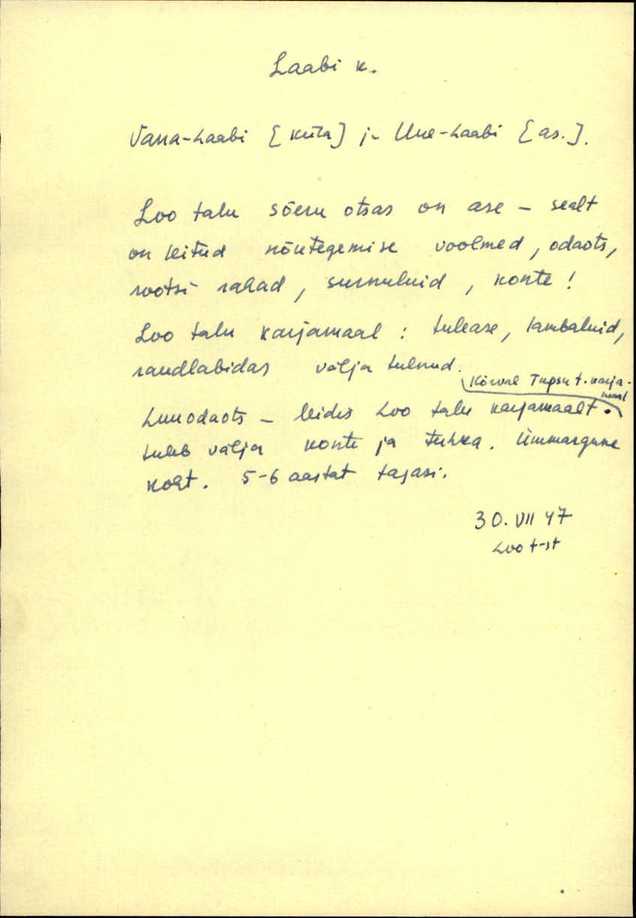 Laabi k.
Vana-Laabi [küla] ja Uue-Laabi [as.].
Loo talu sõeru otsas on ase – sealt
on leitud nõutegemise voolmed, odaots,
rootsi rahad, surnuluid, konte!
Loo talu karjamaal: tulease, lambaluid,
raudlabidas välja tulnud.
Kõrval Tupsu t. karja-
maal
Luuodaots – leidis Loo talu karjamaalt.
tuleb välja konte ja tuhka. Ümmargune
koht. 5-6 aastat tagasi.
30. VII 47
Loo t-st